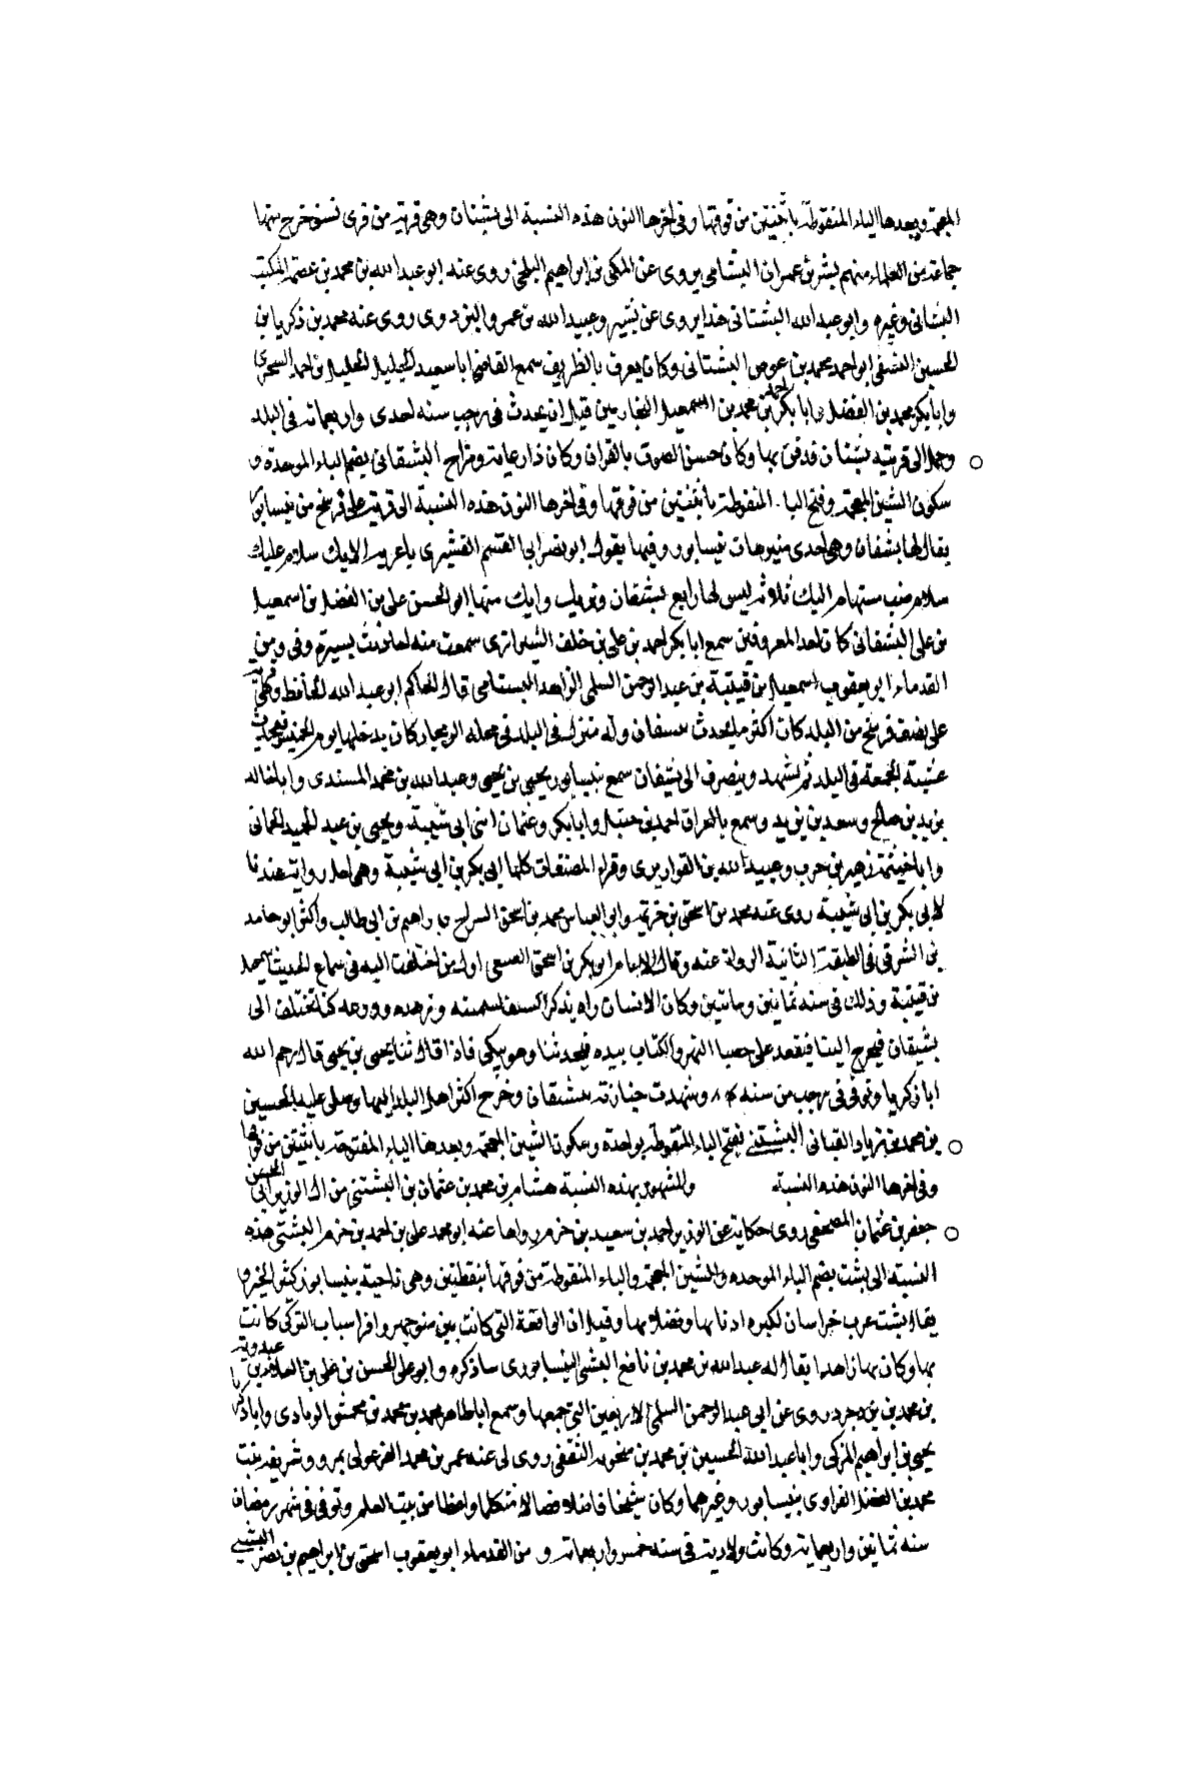 المعجمة وبعدها الياء المنقوطة باثنتين من فوقها وفي اخرها النون هذه النسبة الى بشتان وهي قرية من قرى نسف خرج منها
جماعة من العلماء منهم بشر بن عمران البشتاني يروى عن المكي بن ابراهيم البلخي روى عنه ابو عبد الله بن محمد بن عصمة المكتب
البشتاني وغيره وابو عبد الله البشتاني هذا يروى عن بشير وعبيد الله بن عمرو البزدوى روى عنه محمد بن زكريا بن
الحسين النسفي ابو احمد محمد بن عوض البشتاني وكان يعرف بالظريف سمع القاضي ابا سعيد الخليل بن احمد السجزي
وابا بكر محمد بن الفضل وابا بكر احمد بن محمد بن اسمعيل البخاريين قيل ان يحدث في رجب سنه احدى واربعمائه في البلد
وحمل الى قريته بشتان فدفن بها وكان حسن الصوت بالقران وكان ذا رعاية ومزاح البشتقاني بضم الباء الموحده و
سكون الشين المعجمة وفتح اليا المنقوطة باثنتين من فوقها وفي اخرها النون هذه النسبة الى قرية على فرسخ من نيسابور
يقال لها بشتقان وهي احدى متنزهات نيسابور وفيها يقول ابو نصر ابن ابي القسم القشيري يا عريب الايك سلام عليك
سلام صب مستهام اليك ثلاثة ليس لها رابع بشتقان وايك منها ابو الحسن علي بن الفضل بن اسمعيل
بن علي البشتقاني كان احد المعروفين سمع ابا بكر احمد بن علي بن خلف الشيرازي سمعت منه احاديث يسيرة وفي ومن
القدماء ابو يعقوب اسمعيل بن قتيبة بن عبد الرحمن السلمي الزاهد البستامي قال الحاكم ابو عبد الله الحافظ وهي قرية
على نصف فرسخ من البلد كان اكثر ما يحدث ببشتقان وله منزل في البلد في محله الرمجار كان يدخلها يوم الخميس فيحدث
عشية الجمعة في البلد ثم يشهد وينصرف الى بشتقان سمع بنيسابور يحيى بن يحيى وعبد الله بن محمد المسندي وابا خالد
يزيد بن صالح وسعد بن يزيد وسمع بالعراق احمد بن حنبل وابا بكر وعثمان ابني ابي شيبة ويحيى بن عبد الحميد الحماني
وابا خيثمة زهير بن حرب وعبيد الله بن القواريري وقرا المصنفات كلها ابي بكر بن ابي شيبة وهي اجل رواية عندنا
لابي بكر بن ابي شيبة روى عنه محمد بن اسحق بن خزيمة وابو العباس محمد بن اسحق السراج و ابراهيم بن ابي طالب واكثر ابو حامد
بن الشرقي في الطبقة الثانية الرواة عنه وقال الامام ابو بكر بن اسحق الصبغي اول من اختلفت اليه في سماع الحديث اسمعيل
بن قتيبة وذلك في سنه ثمانين ومائتين وكان الانسان اذا راه يذكر السلف لسمته وزهده وورعه كنا نختلف الى
بشتقان فيخرج الينا فيقعد على حصبا النهر والكتاب بيده فيحدثنا وهو يبكي فاذا قال ثنا يحيى بن يحيى قال رحم الله
ابا زكريا وتوفي في رجب من سنه وشهدت جنازته ببشتقان وخرج اكثر اهل البلد اليها وصلى عليه الحسين
بن محمد بن زياد القباني البشتني بفتح الباء المنقوطة بواحدة وسكون الشين المعجمة وبعدها الياء المفتوحة باثنتين من فوقها
وفي اخرها النون هذه النسبة والمشهور بهذه النسبة هشام بن محمد بن عثمان بن البشتني من ال الوزير ابي الحسن
جعفر بن عثمان المصحفي روى حكاية عن الوزير احمد بن سعيد بن حزم رواها عنه ابو محمد علي بن احمد بن حزم البشتي هذه
النسبة الى بشت بضم الباء الموحده والشين المعجمة والياء المنقوطة من فوقها بنقطتين وهي ناحية بنيسابور كثير الخير و
يقال بشت عرب خراسان لكثرة ادبائها وفضلائها وقيل ان الواقعة التي كانت بين منوجهر وافراسياب التركي كانت
بها وكان بها زاهدا يقال له عبد الله بن محمد بن نافع البشتي النيسابوري ساذكره وابو علي الحسن بن علي بن العلاء بن عبدويه
بن محمد بن يزدجرد روى عن ابي عبد الرحمن السلمي الاربعين التي جمعها وسمع ابا طاهر محمد بن محمد بن محمش الزيادي وابا زكريا
يحيى بن ابراهيم المزكي وابا عبد الله الحسين بن محمد بن منجويه الثقفي روى لي عنه عمر بن محمد الفرغولي بمرو وشريفه بنت
محمد بن الفضل الفراوي بنيسابور وغيرهما وكان شيخا فاضلا فضالا متكلما واعظا من بيت العلم وتوفي في شهر رمضان
سنه ثمانين واربعمائة وكانت ولادته في سنه خمس واربعمائة و من القدماء ابو يعقوب اسحق بن ابراهيم بن نصر البشتي